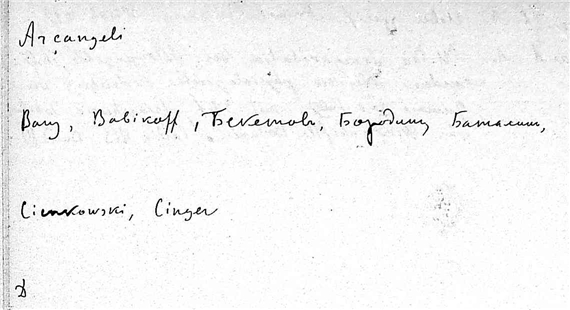 Arcangeli
Bary, Babikoff, Бекетовъ, Бородинъ Баталинъ,
Cienkowski, Cinger
D